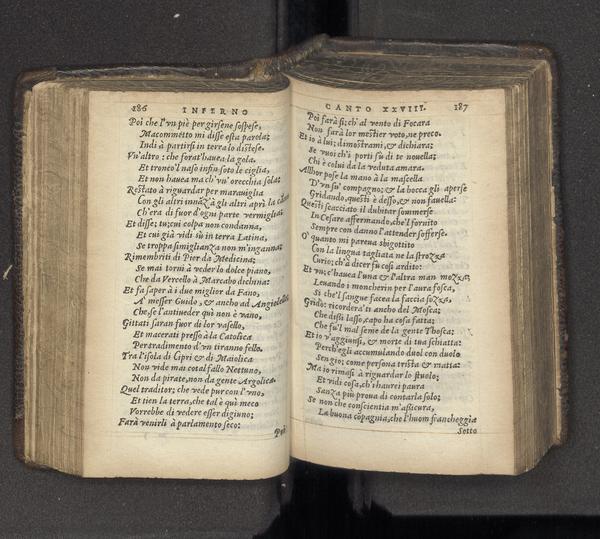 186 INFERNO
Poi che l'vn piè per girsene sospese,
Macommétto mi disse esta parola;
Indi à partirsi in terra lo distese.
Vn'altro: che forat'hauea la gola.
Et tronco'l naso infin sotto le ciglia,
Et non hauea ma ch'vn' orecchia sola;
Restato à riguardar per marauiglia
Con gli altri innāzi à gli altri aprì la cāna
Ch'era di fuor d'ogni parte vermiglia;
Et disse; tu; cui colpa non condanna,
Et cui già vidi sù in terra Latina,
Se troppa simiglianza non m'inganna;
Rimembriti di Pier da Medicina;
Se mai torni à veder lo dolce piano,
Che da Vercello à Marcabo dichina:
Et fa saper à i due miglior da Fano,
A' messer Guido, & ancho ad Angiolello;
Che, se l'antiueder quì non è vano,
Gittati saran fuor di lor vasello,
Et macerati presso à la Catolica
Per tradimento d'vn tiranno fello.
Tra l'isola di Cipri & di Maiolica
Non vide mai cotal fallo Nettuno,
Non da pirate, non da gente Argolica.
Quel traditor; che vede pur con l'vno,
Et tien la terra, che tal è quì meco
Vorrebbe di vedere esser digiuno;
Farà venirli à parlamento seco:
Poi
CANTO XXVIII. 187
Poi farà sì; ch'al vento di Focara
Non farà lor mestier voto, ne preco.
Et io à lui; dimostrami, & dichiara;
Se vuoi ch'i porti sù di te nouella;
Chi è colui da la veduta amara.
Allhor pose la mano à la mascella
D'vn su' compagno; & la bocca gli aperse
Gridando, questi è desso, & non fauella:
Questi scacciato il dubitar sommerse
In Cesare affermando, che'l fornito
Sempre con danno l'attender sofferse.
O' quanto mi pareua sbigottito
Con la lingua tagliata ne la strozza
Curio; ch'à dicer fu così ardito:
Et vn; c'hauea l'una & l'altra man mozza;
Leuando i moncherin per l'aura fosca,
Sì che'l sangue facea la faccia sozza,
Gridò: ricordera'ti ancho del Mosca;
Che dissi lasso, capo ha cosa fatta;
Che fu'l mal seme de la gente Thosca;
Et io v'aggiunsi, & morte di tua schiatta:
Perch'egli accumulando duol con duolo
Sen gio; come persona trista & matta:
Ma io rimasi à riguardar lo stuolo;
Et vidi cosa, ch'i haurei paura
Sanza più proua di contarla solo;
Se non che conscientia m'assicura,
La buona cōpagnia, che l'huom francheggia
Sotto